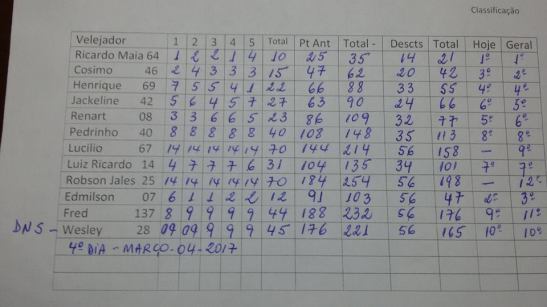 Classificação
Velejador 1 2 3 4 5 Total Pt Ant Total - Descts Total Hoje Geral
Ricardo Maia 64 1 2 2 1 4 10 25 35 14 21 1º 1º
Cosimo 46 2 4 3 3 3 15 47 62 20 42 3º 2º
Henrique 69 7 5 5 4 1 22 66 88 33 55 4º 4º
Jackeline 42 5 6 4 5 7 27 63 90 24 66 6º 5º
Renart 08 3 3 6 6 5 23 86 109 32 77 5º 6º
Pedrinho 40 8 8 8 8 8 40 108 148 35 113 8º 8º
Lucilio 67 14 14 14 14 14 70 144 214 56 158 - 9º
Luiz Ricardo 14 4 7 7 7 6 31 104 135 34 101 7º 7º
Robson Jales 25 14 14 14 14 14 70 184 254 56 198 - 12º
Edmilson 07 6 1 1 2 2 12 91 103 56 47 2º 3º
Fred 137 8 9 9 9 9 44 188 232 56 176 9º 11º
DNS - Wesley 28 09 09 9 9 9 45 176 221 56 165 10º 10º
4º DIA - MARÇO-04-2017